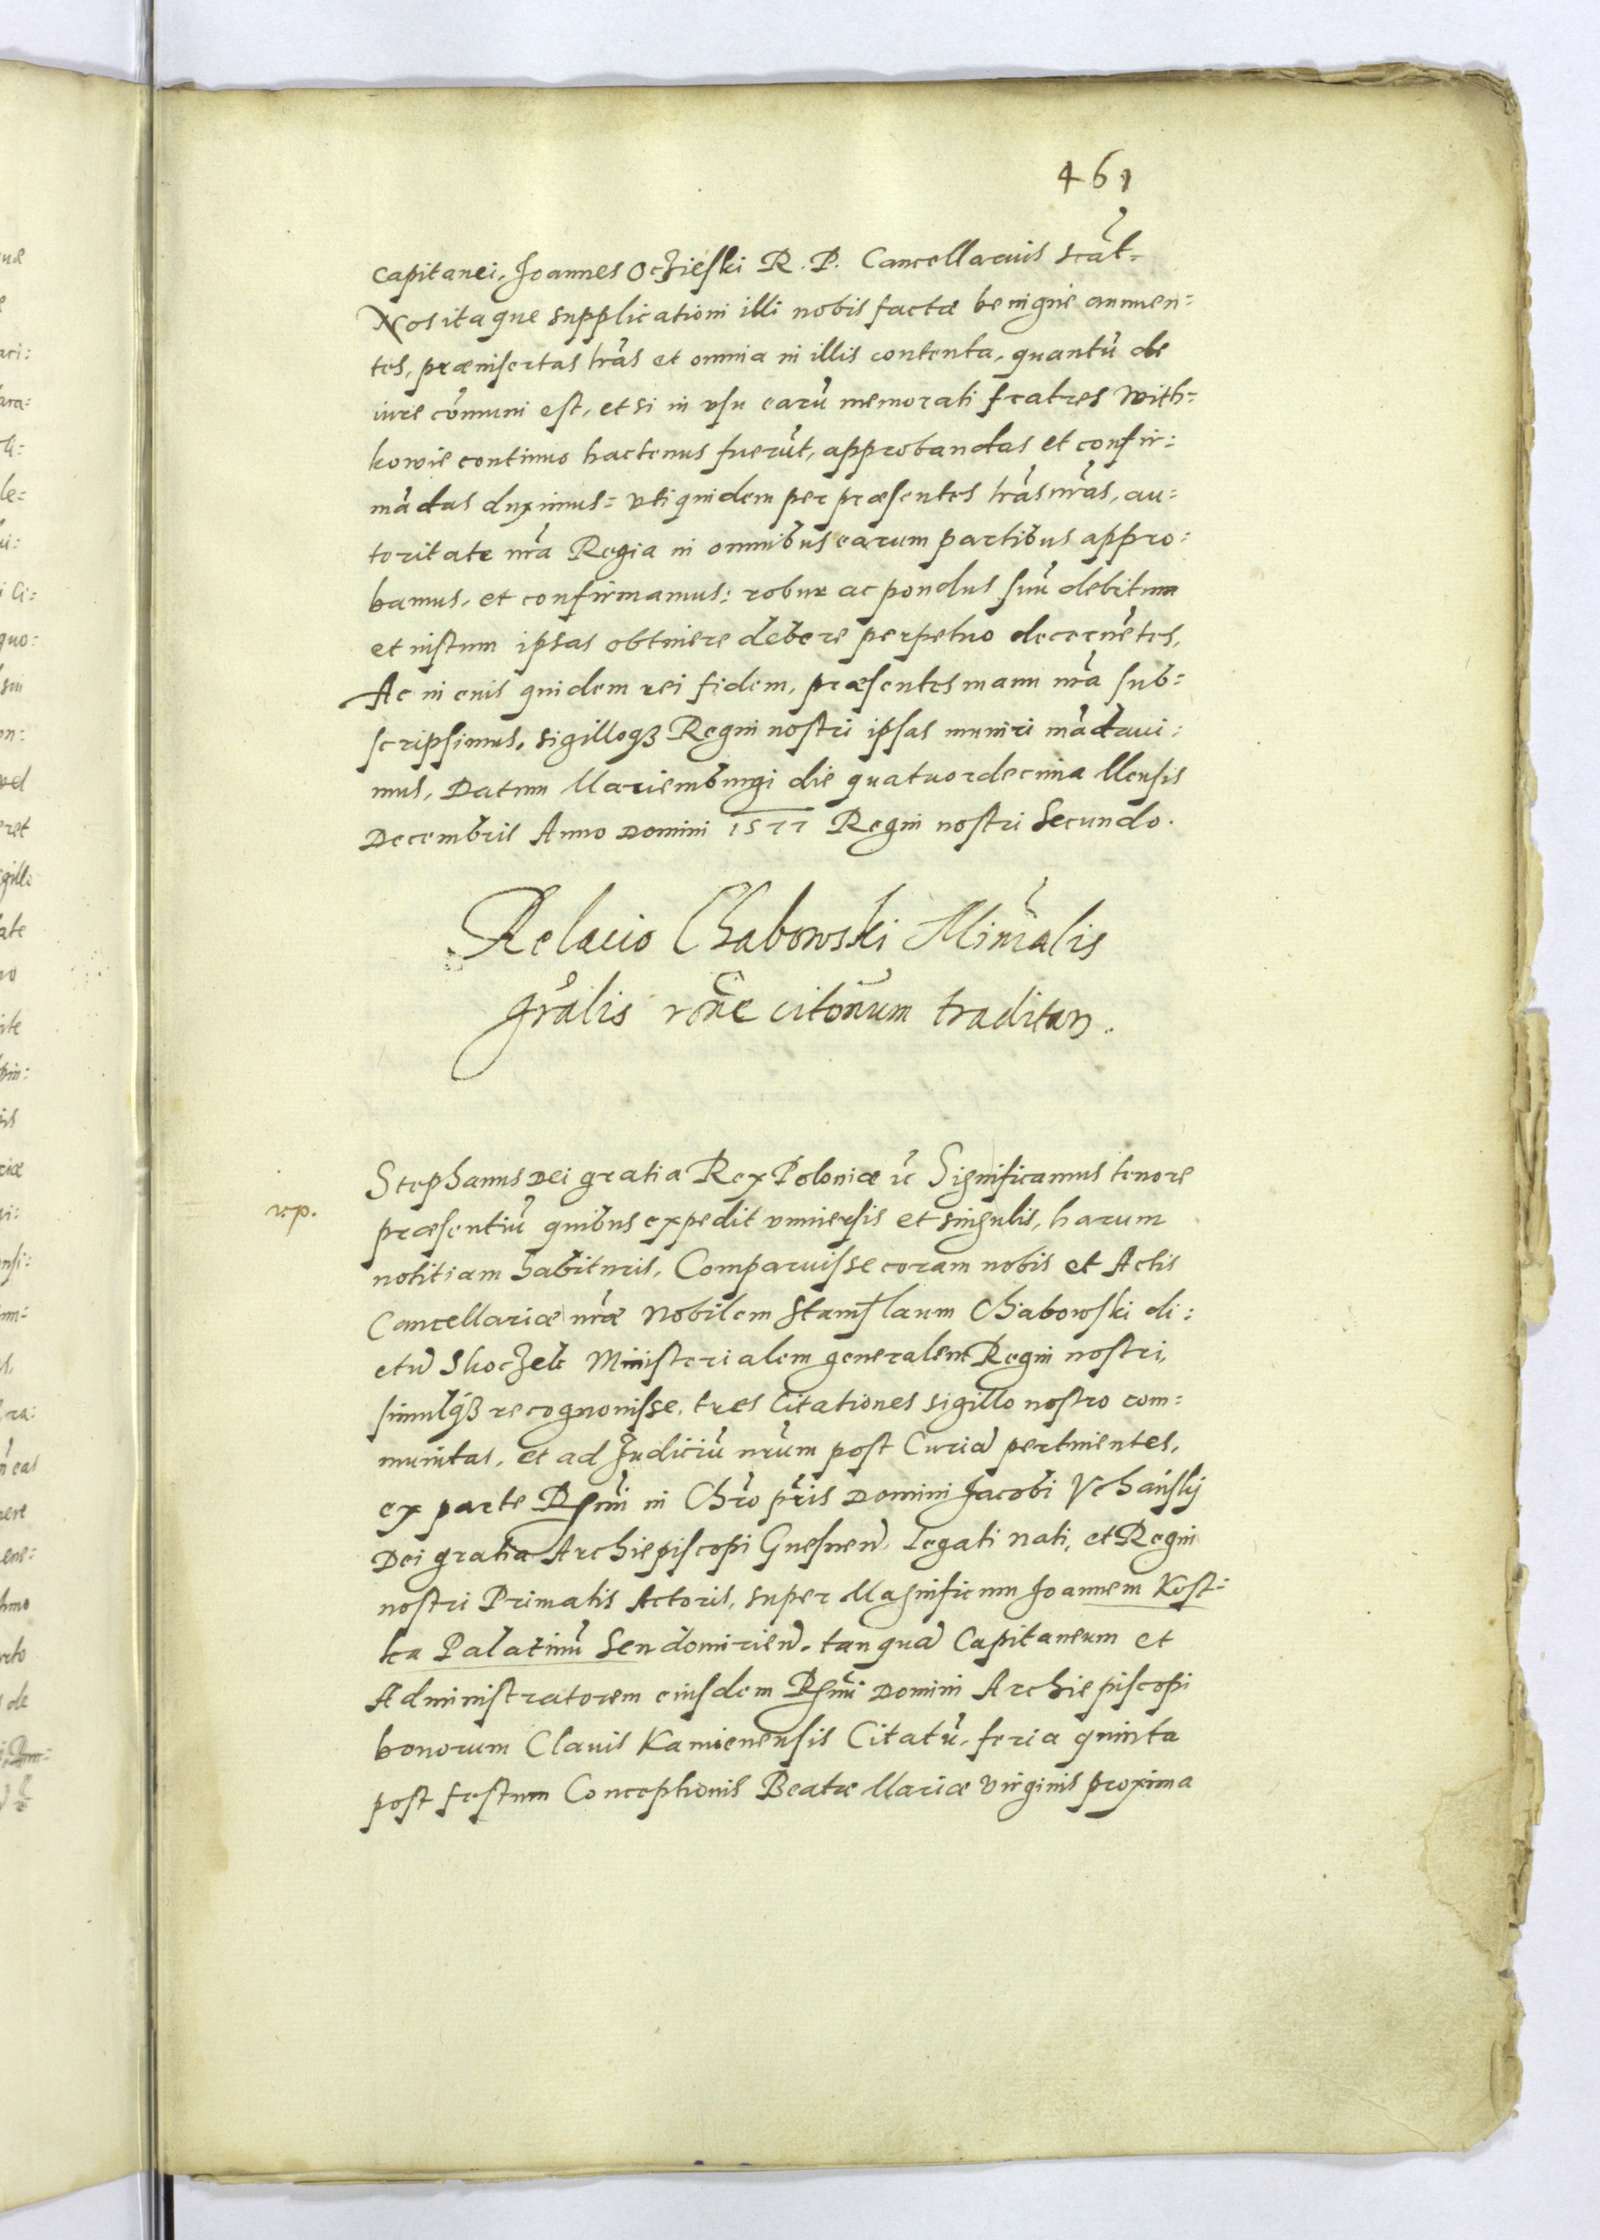 461
capitanei, Joannes Oczieski R. P. Cancellarius scāt=
Nos itaque supplicationi illi nobis factæ benigne annuen:
tes, præinsertas lr̄as et omnia in illis contenta, quantū de
iure cōmuni est, et si in vsu earū memorati fratres With=
kowie continuo hactenus fuerūt, approbandas et confir:
mādas duximus= vti quidem per præsentes lr̄as nr̄as, au:
toritate nr̄a Regia in omnibus earum partibus appro:
bamus, et confirmamus: robur ac pondus suū debitum
et iustum ipsas obtinere debere perpetuo decernētes,
Ac in cuius quidem rei fidem, præsentes manu nr̄a sub:
scripsimus, sigilloqꝫ Regni nostri ipsas muniri mādaui:
mus, Datum Mariemburgi die quatuordecima Mensis
Decembris Anno Domini 1577 Regni nostri Secundo.
Relacio Chabowski Minr̄alis
gn̄ralis rōne citōnum traditar.
Stephanus Dei gratia Rex Poloniæ ꝛc Significamus tenore
r.p.
præsentiū quibus expedit vniuersis et singulis, harum
notitiam habituris, Comparuisse coram nobis et Actis
Cancellariæ nr̄æ Nobilem Stanislaum Chabowski di:
ctū Skoczek Ministerialem generalem Regni nostri,
simulqꝫ recognouisse, tres Citationes sigillo nostro com=
munitas, et ad Judiciū nr̄um post Curiā pertinentes,
ex parte Rs̄mi in Chr̄o pr̄is Domini Jacobi Vchański
Dei gratia Archiepiscopi Gnesnen̄, Legati Nati, et Regni
nostri Primatis Actoris, super Magnificum Joannem Kost:
ka Palatinū Sendomirien̄, tanquā Capitaneum et
Administratorem eiusdem Rs̄mi Domini Archiepiscopi
bonorum Clauis Kamienensis Citatū, feria quinta
post festum Conceptionis Beatæ Mariæ Virginis proxima